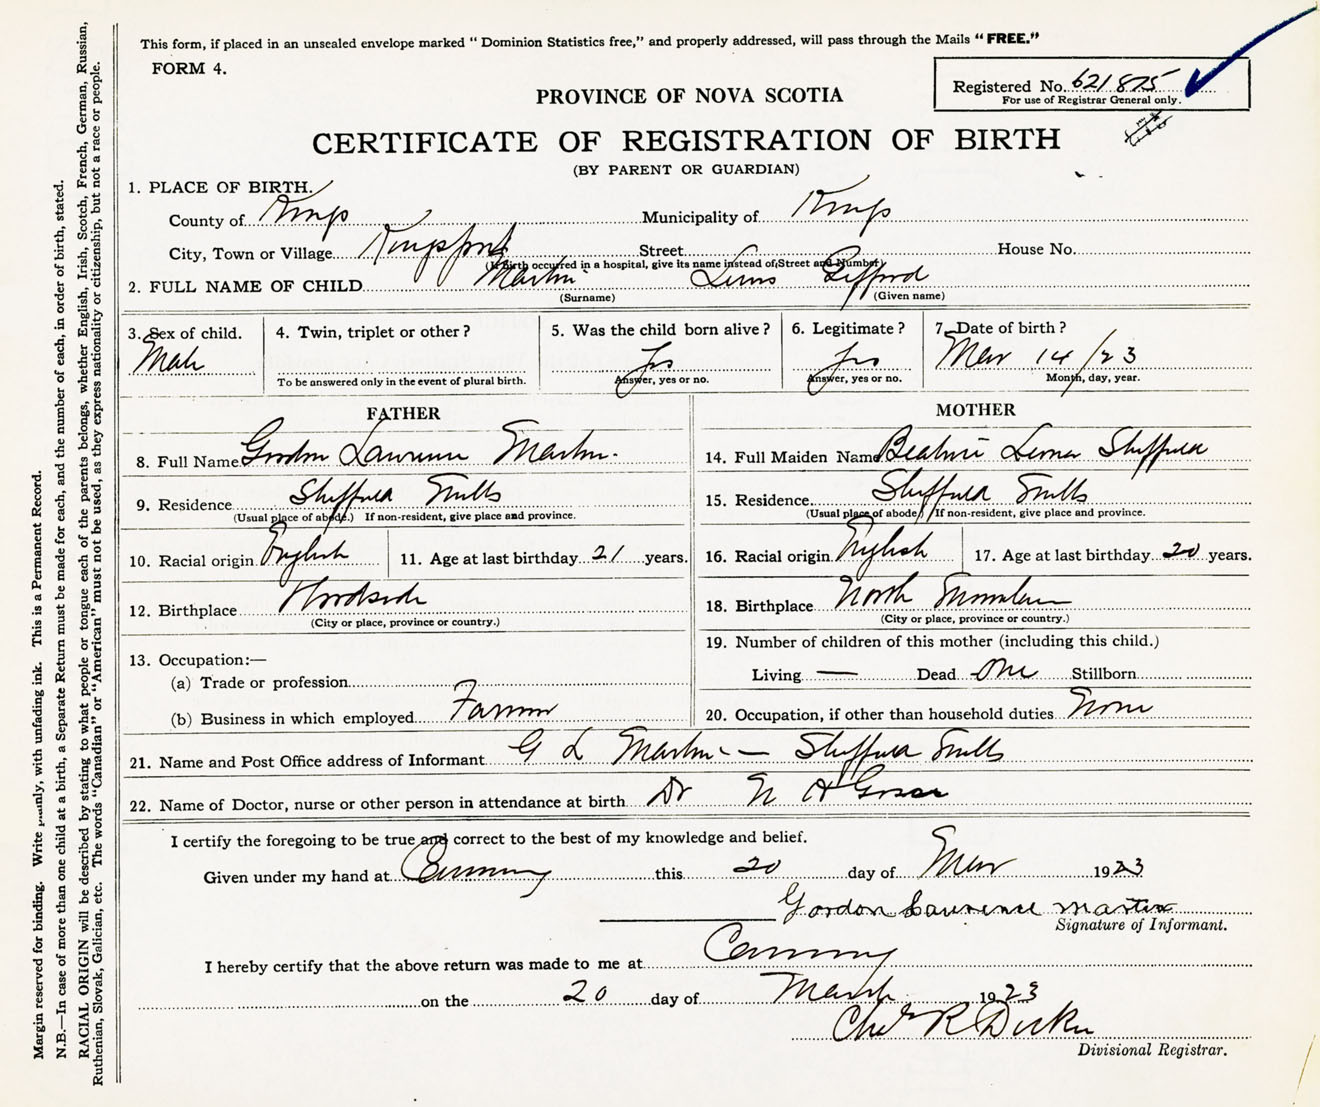 This form, if placed in an unsealed envelope marked "Dominion Statistics free," and properly addressed, will pass through the Mails "FREE."
FORM 4.
Registered No. 621875
For use of Registrar General only.
PROVINCE OF NOVA SCOTIA
CERTIFICATE OF REGISTRATION OF BIRTH
(BY PARENT OR GUARDIAN)
1. PLACE OF BIRTH.
County of Kings Municipality of Kings
City, Town or Village Kingsport Street House No.
(If birth occurred in a hospital, give its name instead of Street and Number)
2. FULL NAME OF CHILD Martin Gifford
(Surname) (Given name)
3. Sex of child. 4. Twin, triplet or other? 5. Was the child born alive? 6. Legitimate? 7. Date of birth?
Male Yes Yes Mar 14/23
To be answered only in the event of plural birth. Answer, yes or no. Answer, yes or no. Month, day, year.
FATHER
8. Full Name Gordon Lawrence Martin.
9. Residence Sheffield Mills
(Usual place of abode.) If non-resident, give place and province.
10. Racial origin English 11. Age at last birthday 21 years.
12. Birthplace Woodside
(City or place, province or country.)
13. Occupation:—
(a) Trade or profession
(b) Business in which employed Farmer
MOTHER
14. Full Maiden Name Beatrice Sheffield
15. Residence Sheffield Mills
(Usual place of abode.) If non-resident, give place and province.
16. Racial origin English 17. Age at last birthday 20 years.
18. Birthplace North Mountain
(City or place, province or country.)
19. Number of children of this mother (including this child.)
Living — Dead One Stillborn
20. Occupation, if other than household duties None
21. Name and Post Office address of Informant G L Martin — Sheffield Mills
22. Name of Doctor, nurse or other person in attendance at birth Dr N H
I certify the foregoing to be true and correct to the best of my knowledge and belief.
Given under my hand at Canning this 20 day of Mar 1923
Gordon Lawrence Martin
Signature of Informant.
I hereby certify that the above return was made to me at Canning
on the 20 day of March 1923
Chas R
Divisional Registrar.
Margin reserved for binding. Write plainly, with unfading ink. This is a Permanent Record.
N.B.—In case of more than one child at a birth, a Separate Return must be made for each, and the number of each, in order of birth, stated.
RACIAL ORIGIN will be described by stating to what people or tongue each of the parents belongs, whether English, Irish, Scotch, French, German, Russian,
Ruthenian, Slovak, Galician, etc. The words "Canadian" or "American" must not be used, as they express nationality or citizenship, but not a race or people.